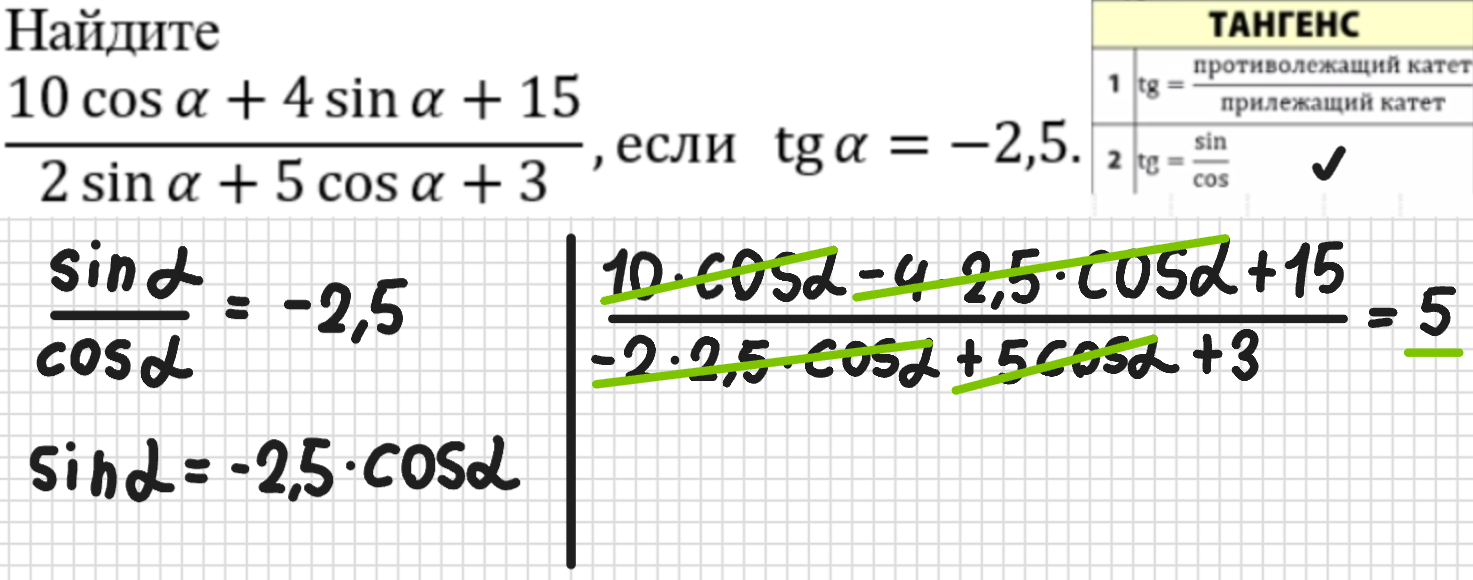 Найдите
10 cos α + 4 sin α + 15
2 sin α + 5 cos α + 3
, если tg α = −2,5.
ТАНГЕНС
1 tg = противолежащий катет
прилежащий катет
2 tg = sin
cos
✓
sin α
cos α
= -2,5
sin α = -2,5 · cos α
10 · cos α - 4 · 2,5 · cos α + 15
-2 · 2,5 · cos α + 5 cos α + 3
= 5